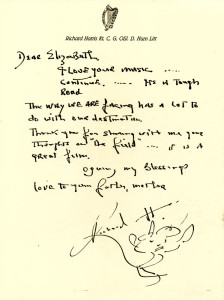 Richard Harris Kt. C. G. OSI. D. Hum Litt
Dear Elizabeth
I Love your music .....
Continue. ..... Its A Tough
Road
The way we are facing has a lot to
do with our destination.
Thank you for sharing with me your
thoughts on the field .... it is a
great film.
again, my blessings
love to your father, mother
Richard H